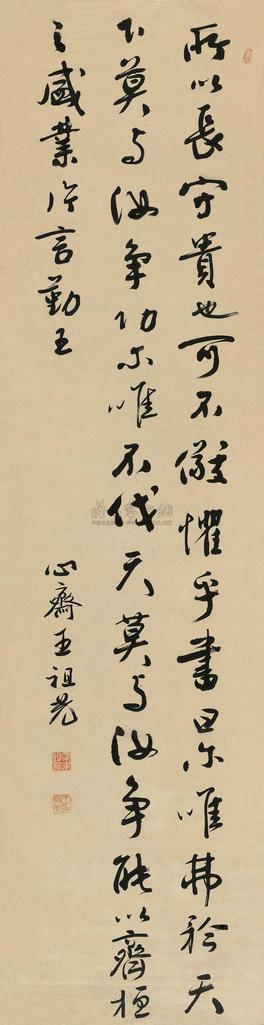 所以長守貴也可不儆懼乎書曰爾唯弗矜天
下莫與汝爭功爾唯不伐天莫與汝爭能以齊桓
之盛業片言勤王
心齋王祖光